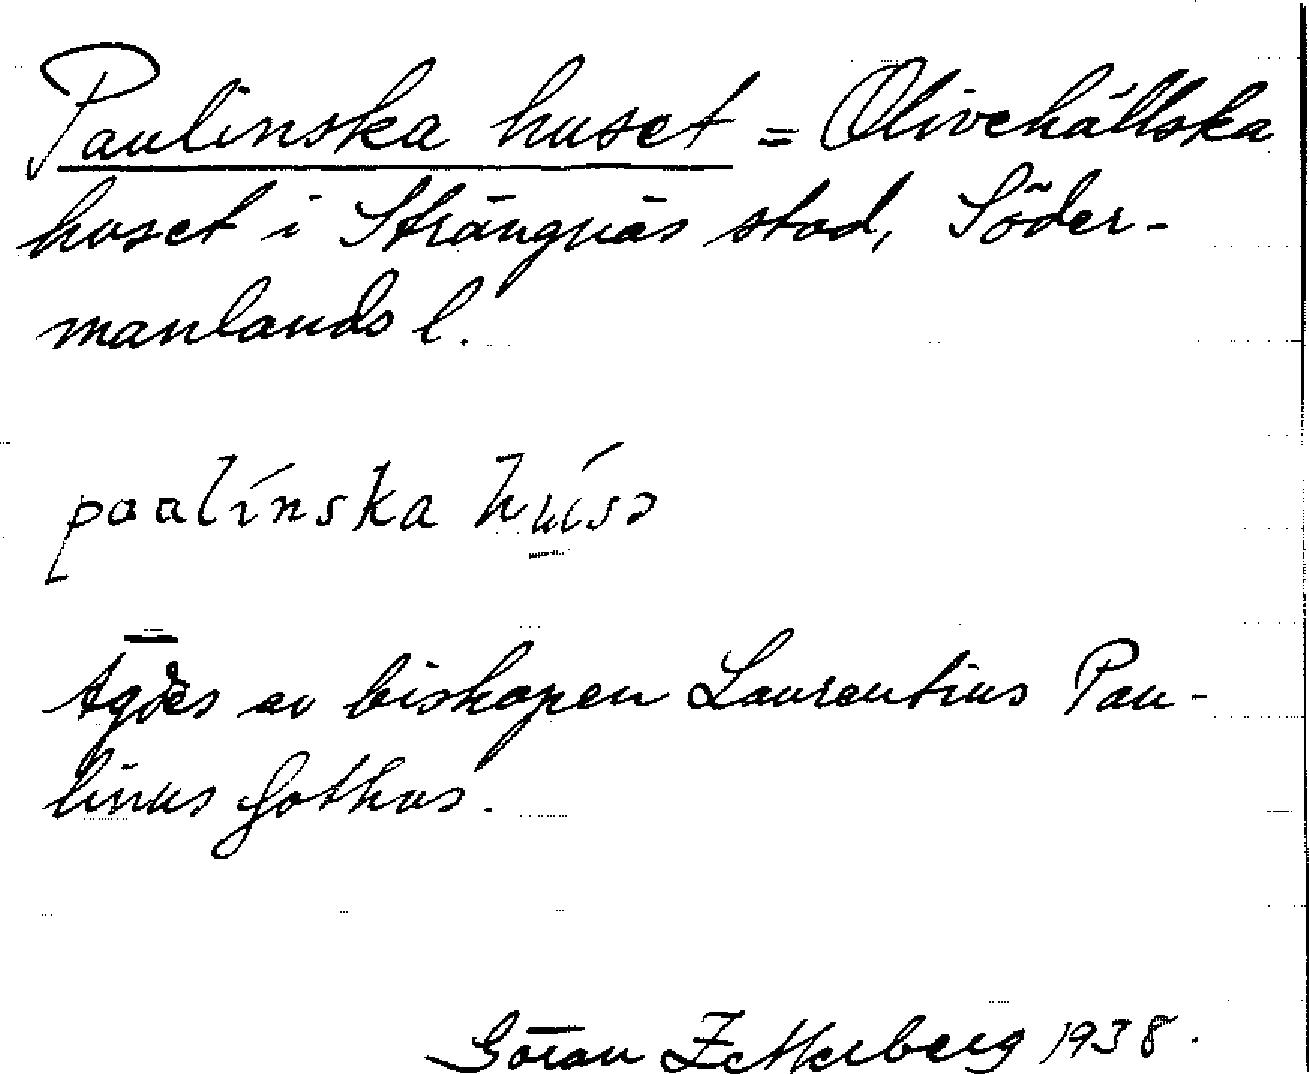 Paulinska huset = Olivehällska
huset i Strängnäs stad, Söder-
manlands l.
paalínska
Ägdes av biskopen Laurentius Pau-
linus Gothus.
Göran Zetterberg 1938.